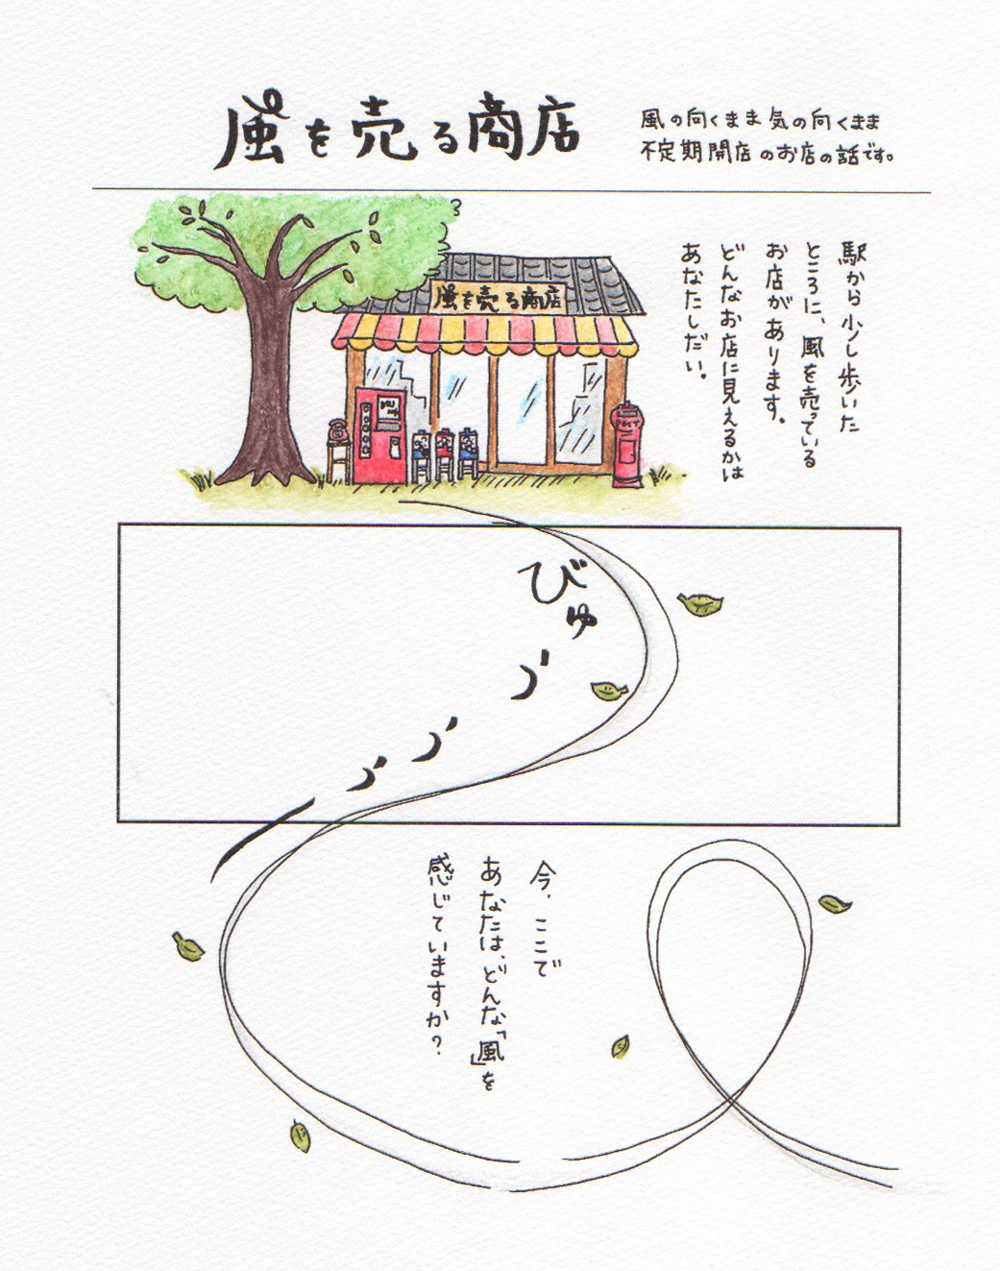 風を売る商店
風の向くまま気の向くまま
不定期開店のお店の話です。
駅から少し歩いた
ところに、風を売っている
お店があります。
どんなお店に見えるかは
あなたしだい。
風を売る商店
POST
びゅうううー
今、ここで
あなたは、どんな「風」を
感じていますか?